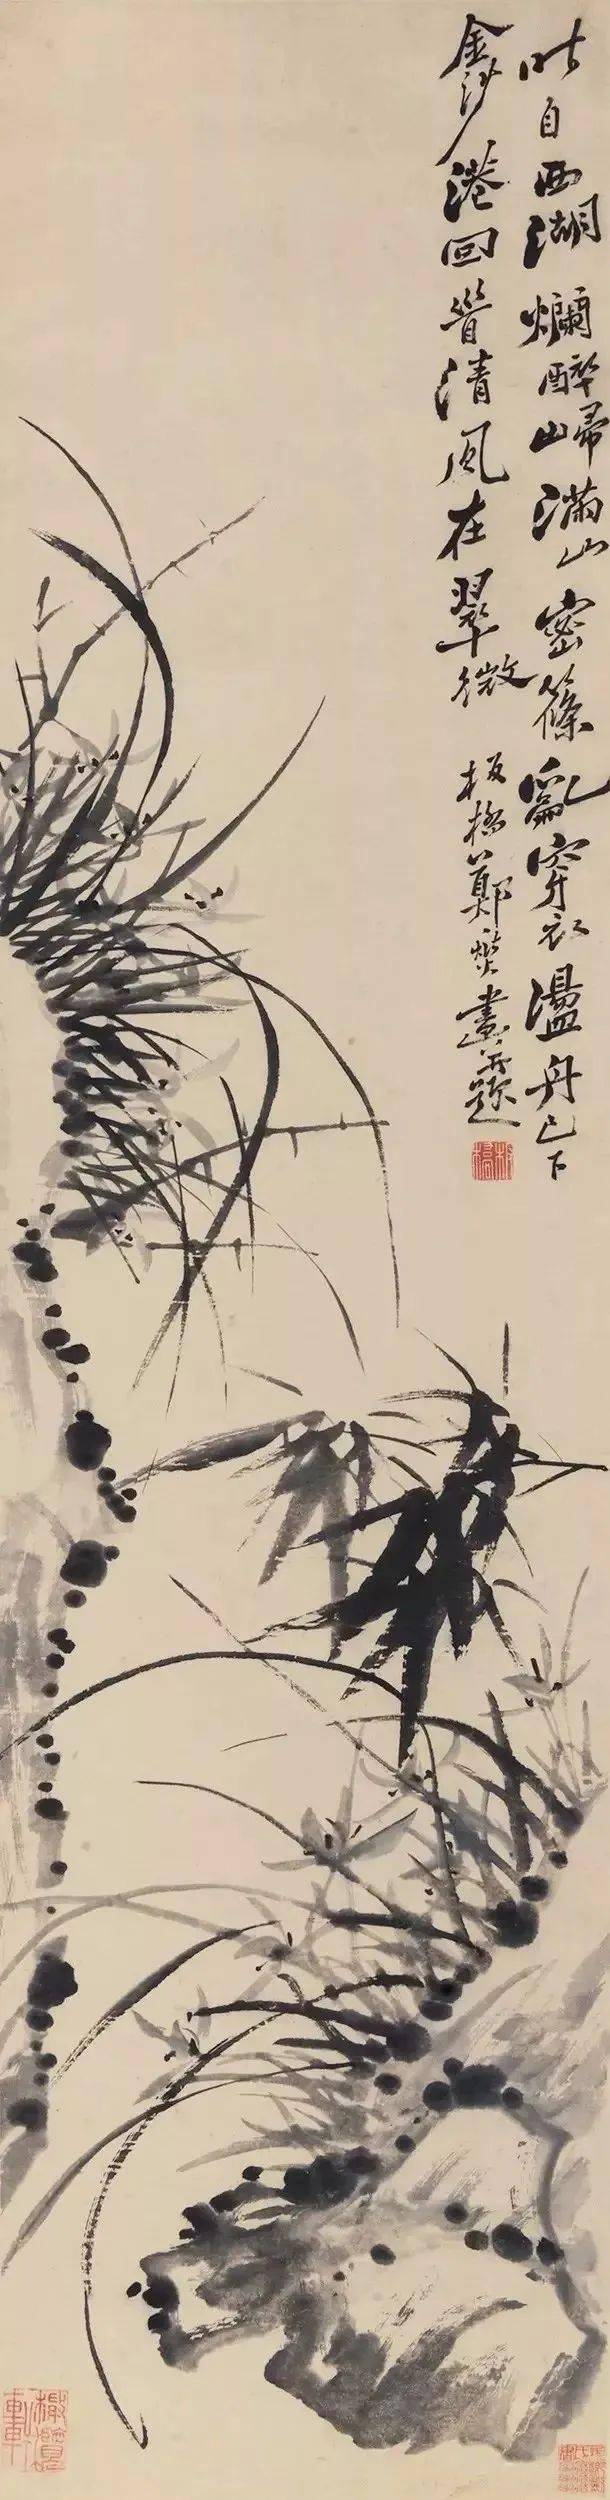 昨自西湖爛醉歸滿山密篠亂穿衣盪舟已下
金沙港回首清風在翠微
板橋鄭燮畫并題